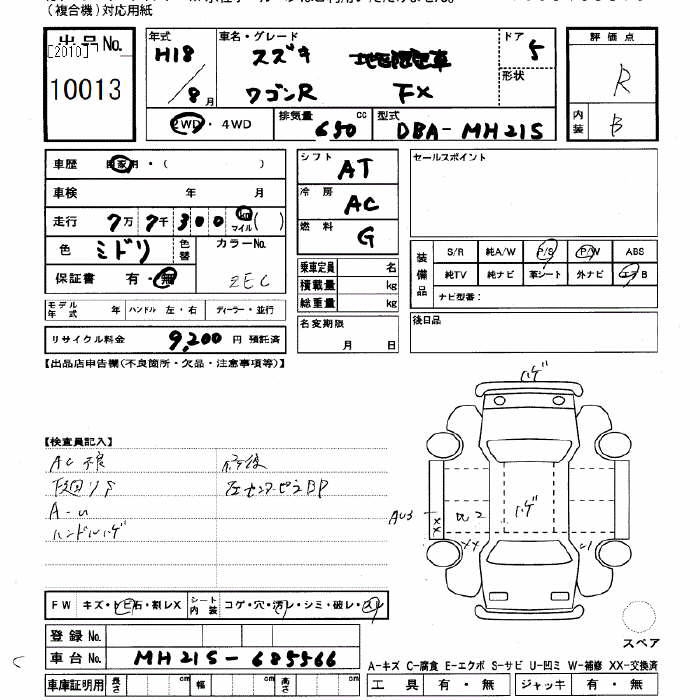 (複合機)対応用紙
出品No.
[2010]
10013
年式 H18 / 8月
車名・グレード スズキ
ワゴンR FX
ドア 5
形状
2WD・4WD
排気量 cc 650
型式 DBA-MH21S
評価点 R
内装 B
車歴 自家用・( )
車検 年 月
走行 7万 7千 300 km マイル( )
色 ミドリ 色替
カラーNo. ZEC
保証書 有・無
モデル年式 年 ハンドル 左・右 ディーラー・並行
リサイクル料金 9,200 円 預託済
シフト AT
冷房 AC
燃料 G
乗車定員 名
積載量 kg
総重量 kg
名変期限
月 日
セールスポイント
装備品
S/R 純A/W P/S P/W ABS
純TV 純ナビ 革シート 外ナビ エアB
ナビ型番:
後日品
【出品店申告欄(不良箇所・欠品・注意事項等)】
【検査員記入】
AC不良
下廻りS
A-u
ハンドルハゲ
修後
左センターピラBP
ハゲ
AU3
XX
ハゲ
FW キズ・トビ石・割レX
シート内装 コゲ・穴・汚レ・シミ・破レ・スレ
登録No.
車台No. MH21S-685566
車庫証明用 長さ cm 幅 cm 高さ cm
スペア
A-キズ C-腐食 E-エクボ S-サビ U-凹ミ W-補修 XX-交換済
工具 有・無 ジャッキ 有・無